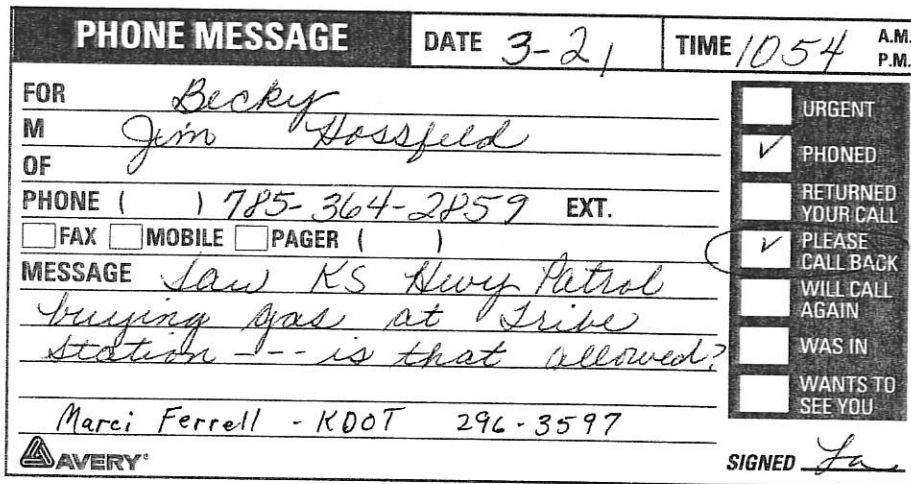 PHONE MESSAGE DATE 3-21 TIME 1054 A.M. P.M.
FOR Becky
M Jim Hossfeld
OF
PHONE ( ) 785-364-2859 EXT.
FAX MOBILE PAGER ( )
MESSAGE Saw KS Hwy Patrol
buying gas at Tribe
Station --- is that allowed?
Marci Ferrell - KDOT 296-3597
AVERY®
URGENT
PHONED
RETURNED
YOUR CALL
PLEASE
CALL BACK
WILL CALL
AGAIN
WAS IN
WANTS TO
SEE YOU
SIGNED